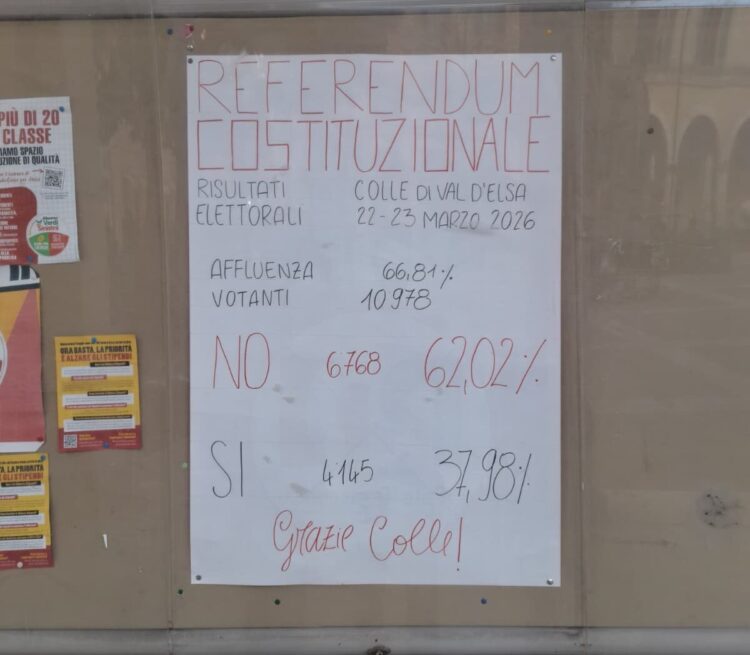 REFERENDUM
COSTITUZIONALE
RISULTATI COLLE DI VAL D'ELSA
ELETTORALI 22-23 MARZO 2026
AFFLUENZA 66,81%
VOTANTI 10978
NO 6768 62,02%
SI 4145 37,98%
Grazie Colle!
PIÙ DI 20
CLASSE
IAMO SPAZIO
ZIONE DI QUALITÀ
Verdi
Sinistra
ORA BASTA, LA PRIORITÀ
È ALZARE GLI STIPENDI
A, LA PRIORITÀ
E GLI STIPENDI